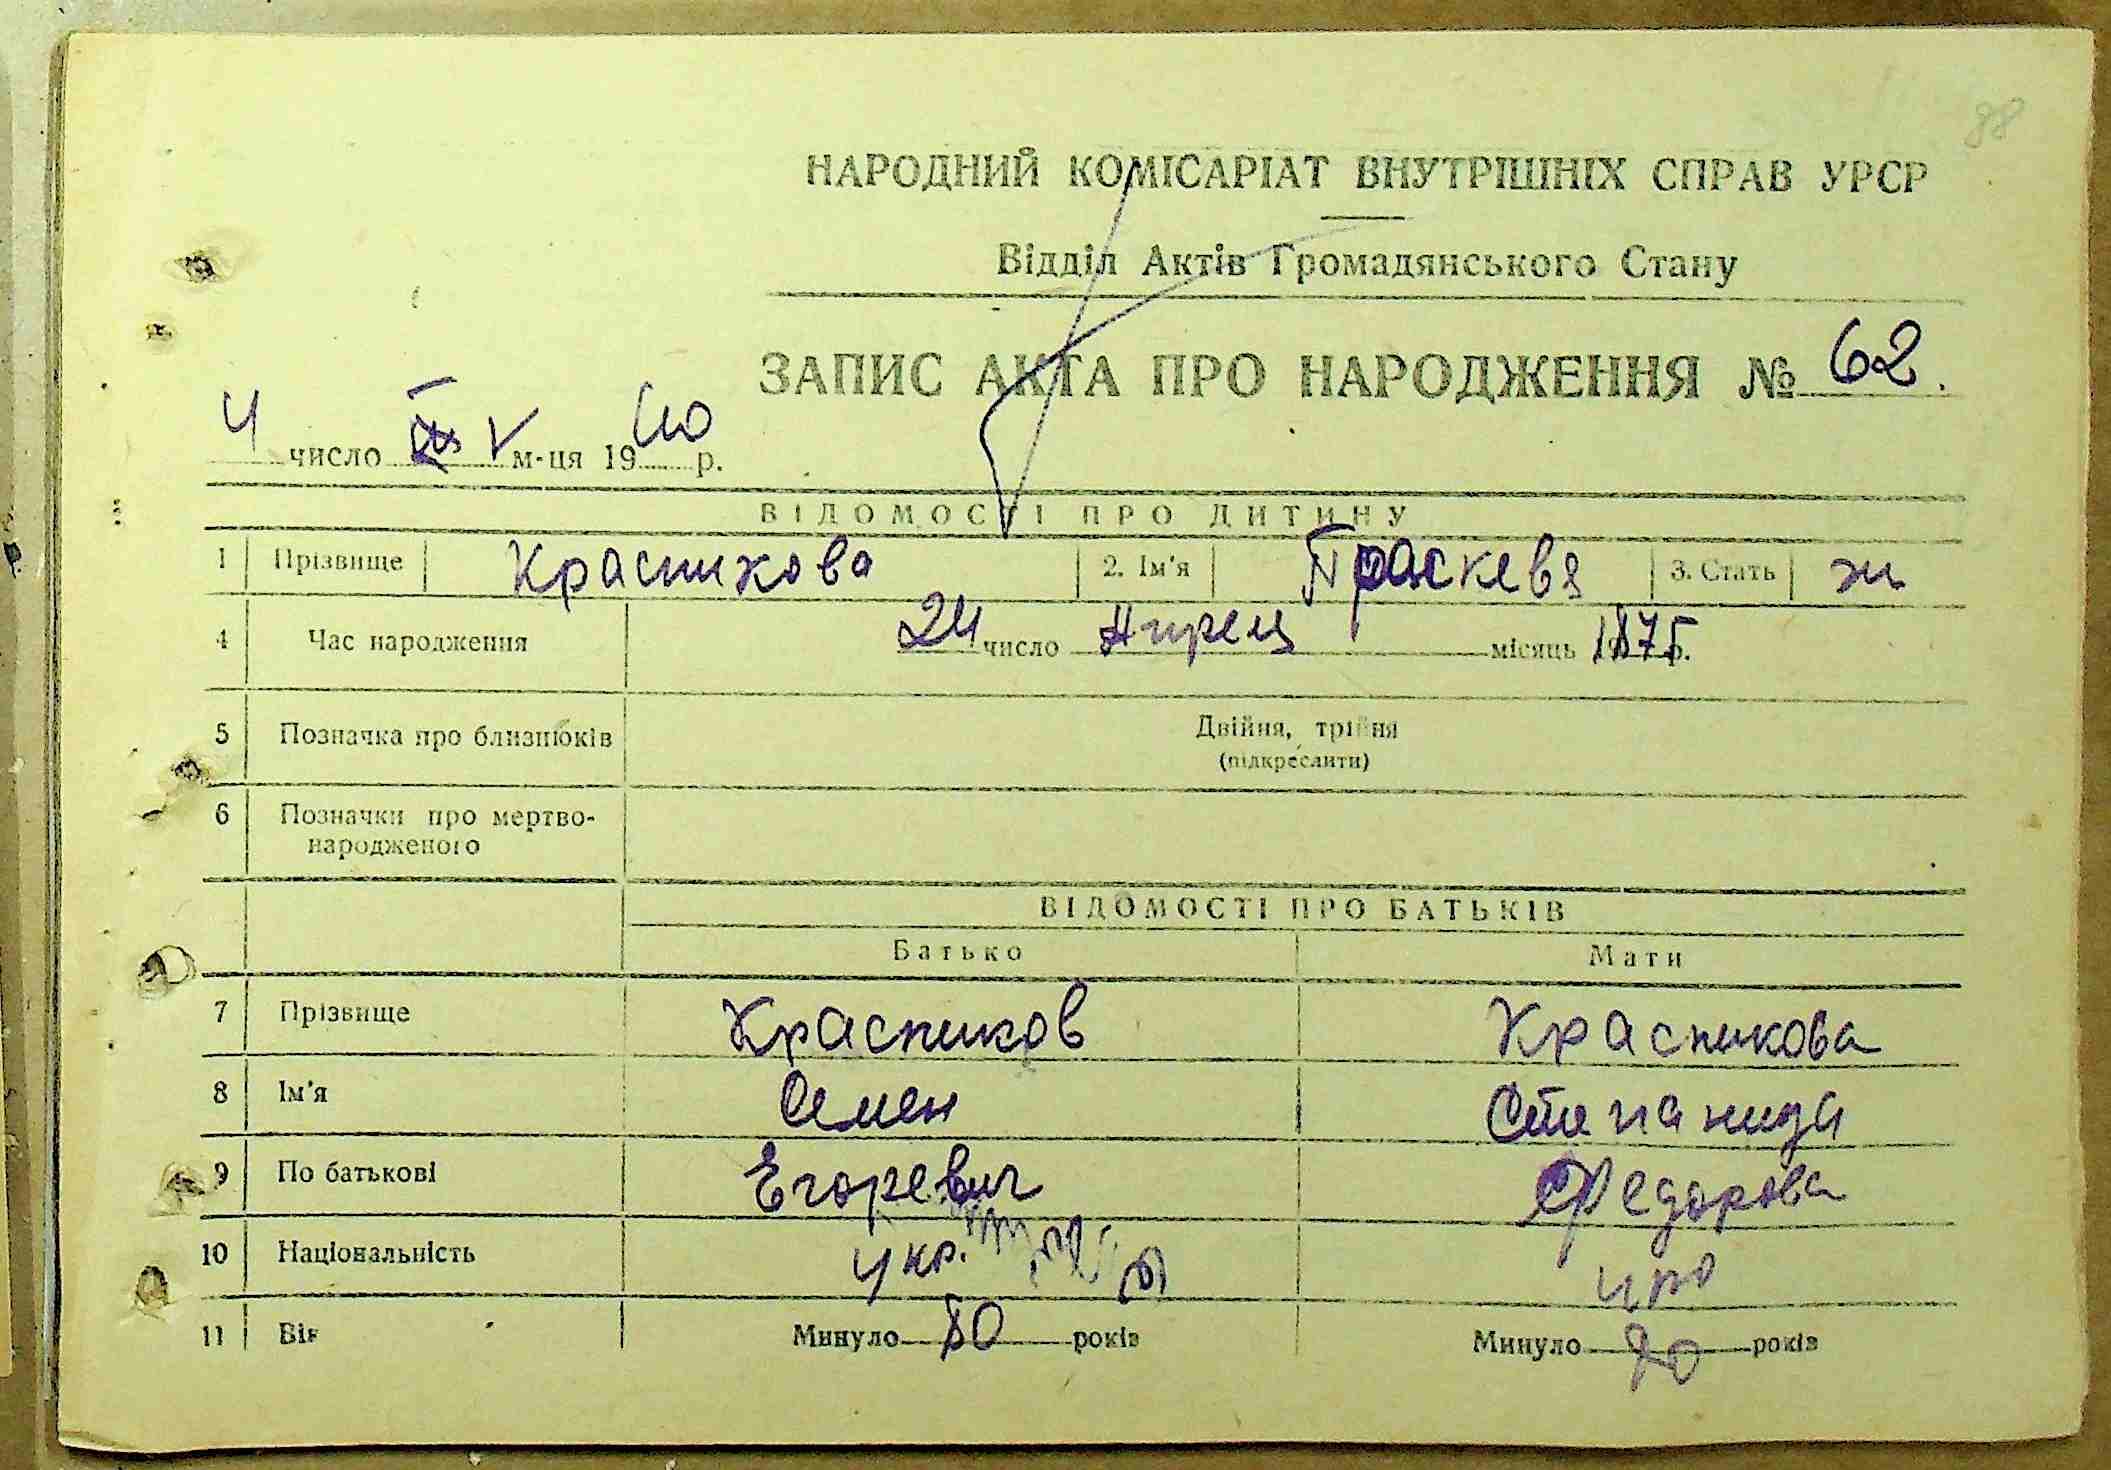 88
НАРОДНИЙ КОМІСАРІАТ ВНУТРІШНІХ СПРАВ УРСР
Відділ Актів Громадянського Стану
ЗАПИС АКТА ПРО НАРОДЖЕННЯ № 62.
4 число V м-ця 1940 р.
ВІДОМОСТІ ПРО ДИТИНУ
1 Прізвище Красникова 2. Ім'я Праскевя 3. Стать ж
4 Час народження 24 число місяць 1875 р.
5 Позначка про близнюків Двійня, трійня
(підкреслити)
6 Позначки про мертво-
народженого
ВІДОМОСТІ ПРО БАТЬКІВ
Батько Мати
7 Прізвище Красников Красникова
8 Ім'я Семен Степанида
9 По батькові Егоревич Федорова
10 Національність укр. укр
11 Вік Минуло 80 років Минуло років